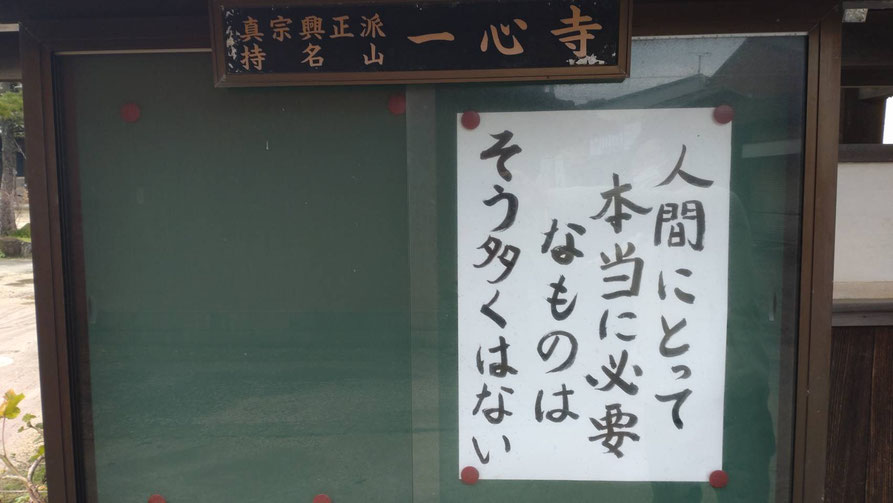 真宗興正派
持名山
一心寺
人間にとって
本当に必要
なものは
そう多くはない